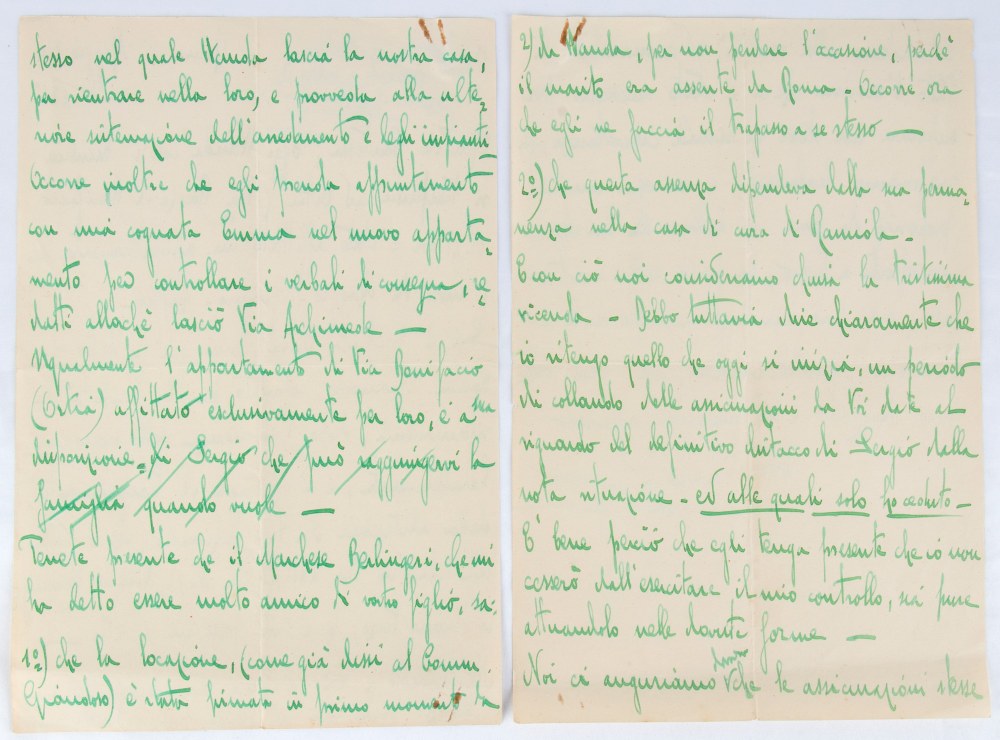 stesso nel quale Wanda lascià la nostra casa,
per rientrare nella loro, e provveda alla ulte=
riore sistemazione dell'arredamento e degli impianti
Occorre inoltre che egli prenda appuntamento
con mia cognata Emma nel nuovo apparta=
mento per controllare i verbali di consegna, re=
datti allorchè lasciò Via Archimede —
Ugualmente l'appartamento di Via Bonifacio
(Ostia) affittato esclusivamente per loro, è a sua
disposizione = di Sergio che può raggiungervi la
famiglia quando vuole —
Tenete presente che il Marchese Berlingeri, che mi
ha detto essere molto amico di vostro figlio, sa:
1º=) che la locazione, (come già dissi al Comm.
) è stata firmata in primo momento da
2) da Wanda, per non perdere l'occasione, perchè
il marito era assente da Roma - Occorre ora
che egli ne faccia il trapasso a se stesso —
2º=) che questa assenza dipendeva dalla sua perma=
nenza nella casa di cura di Ramiola -
E con ciò noi consideriamo chiusa la tristissima
vicenda - Debbo tuttavia dire chiaramente che
io ritengo quello che oggi si inizia, un periodo
di collaudo delle assicurazioni da Voi date al
riguardo del definitivo distacco di Sergio dalla
nota situazione - ed alle quali solo ho ceduto -
E' bene perciò che egli tenga presente che io non
cesserò dall'esercitare il mio controllo, sia pure
attuandolo nelle dovute forme —
Noi ci auguriamo che le assicurazioni stesse